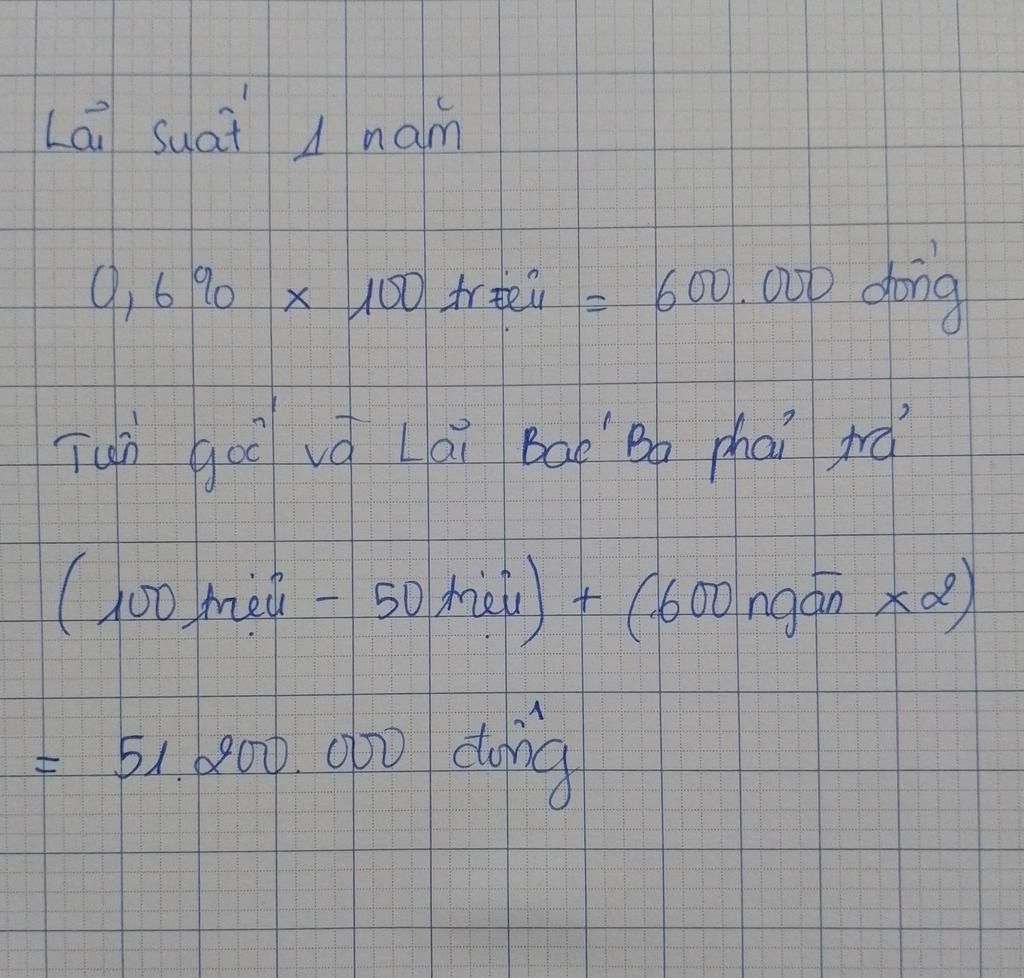 Lãi suất 1 năm
0,6% x 100 triệu = 600.000 đồng
Tiền gốc và Lãi Bác Ba phải trả
(100 triệu - 50 triệu) + (600 ngàn x 2)
= 51.200.000 đồng